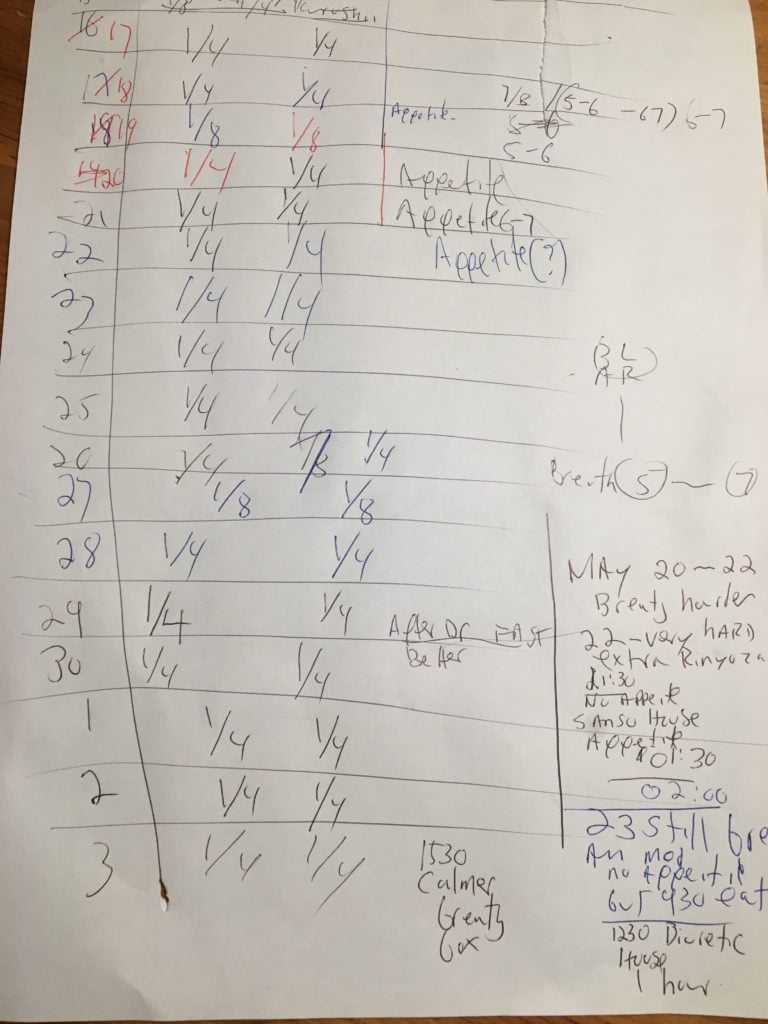 17 1/4 1/4
18 1/4 1/4
7/8 (5-6 -67) 6-7
Appetite
19 1/8 1/8
5-6
5-6
20 1/4 1/4 Appetite
21 1/4 1/4 Appetite 6-7
22 1/4 1/4 Appetite(?)
23 1/4 1/4
24 1/4 1/4
(BL
AR)
25 1/4 1/4
26 1/4 1/8 1/4
Breath(5) — (7)
27 1/8 1/8
28 1/4 1/4
29 1/4 1/4 After Dr FAST
Better
30 1/4 1/4
1 1/4 1/4
2 1/4 1/4
3 1/4 1/4
1530
Calmer
breaty
box
MAY 20~22
Breaty harder
22-very hARD
extra Rinyoza
21:30
No Appeit
SANSO House
Appetit
01:30
02:00
23 Still bre
Am mod
no Appeitit
but 930 eat
1230 Diuretic
House
1 hour